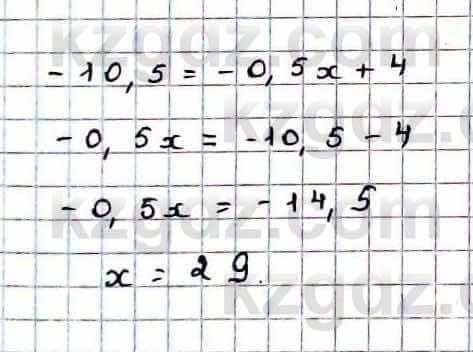 - 10, 5 = - 0, 5x + 4
- 0, 5x = -10, 5 - 4
- 0, 5x = - 14, 5
x = 29.
kzgdz.com